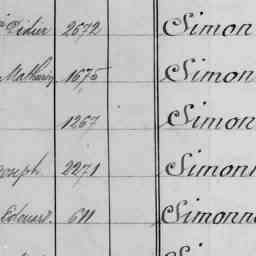 Didier 2672 Simon
Mathurin 1675 Simon
1267 Simon
Joseph 2271 Simon
Edouard. 611 Simonn